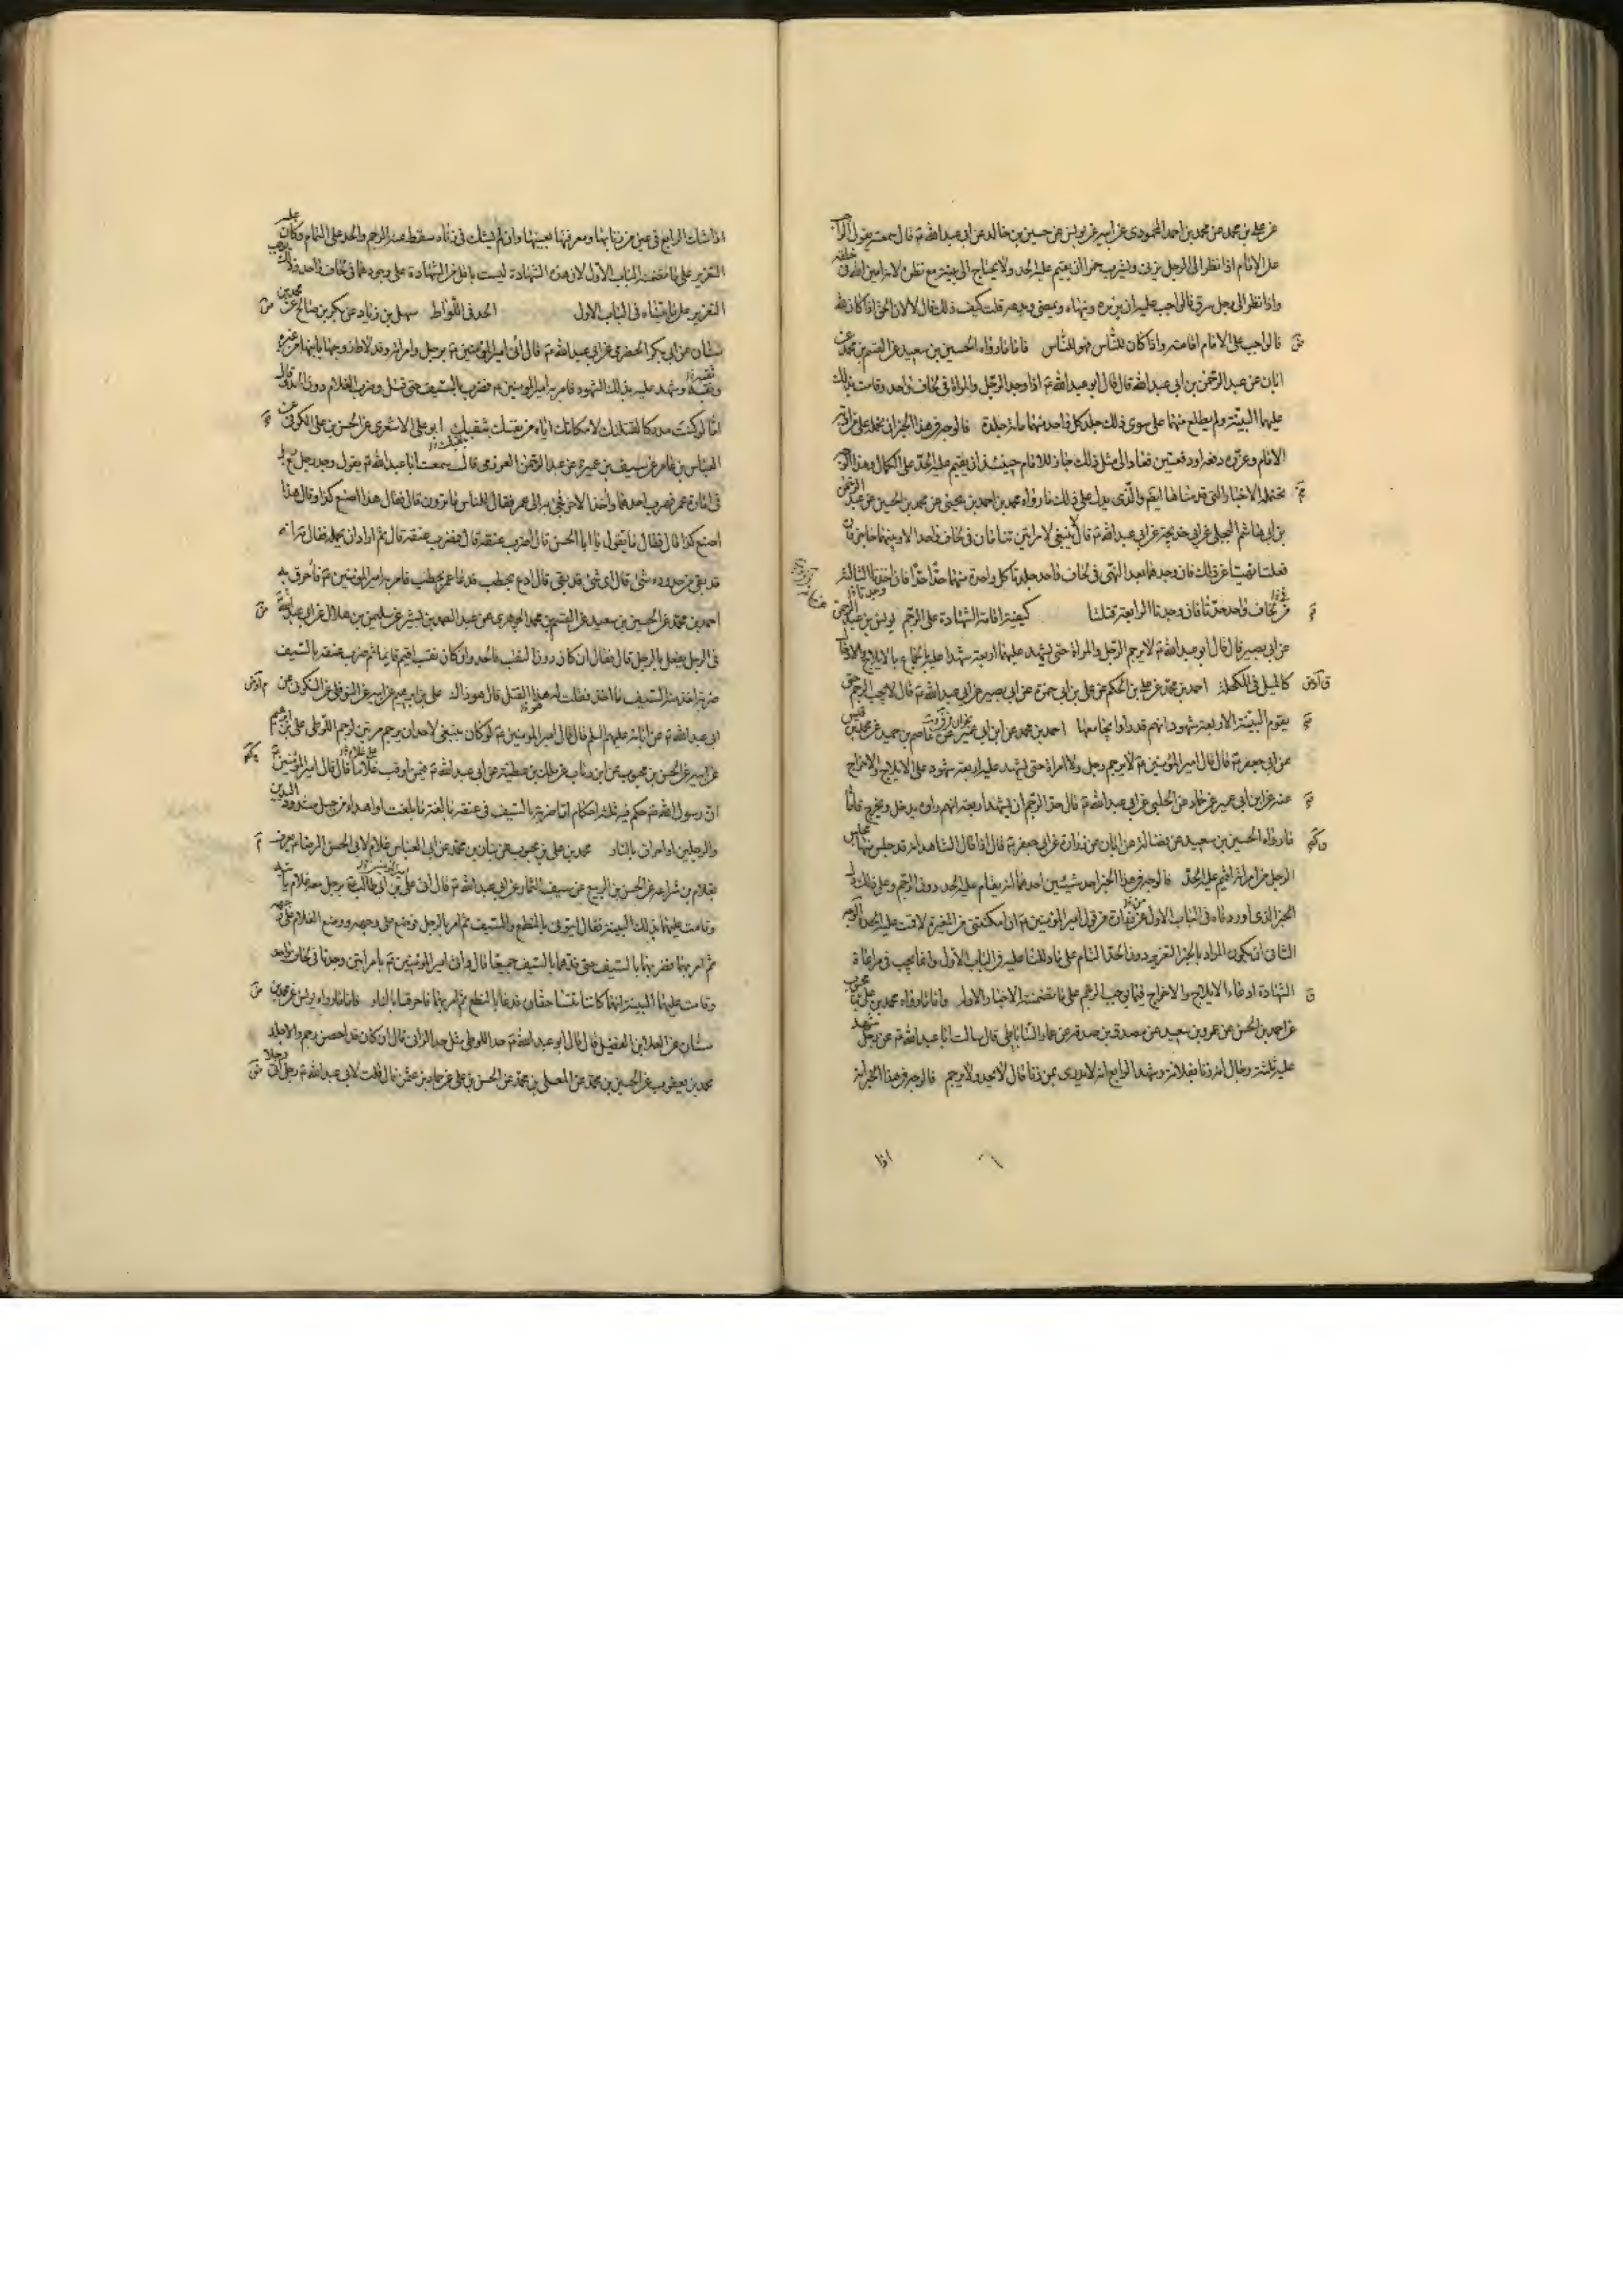 عن علي بن محمد عن محمد بن احمد المحمودي عن ابيه عن يونس عن حسين بن خالد عن ابي عبدالله ع قال سمعته يقول الواجب
على الامام اذا نظر الى الرجل يزني او يشرب خمرا ان يقيم عليه الحد ولا يحتاج الى بينة مع نظره لانه امين الله في خلقه
واذا نظر الى رجل يسرق فالواجب عليه ان يزبره وينهاه ويمضي ويدعه قلت كيف ذلك فقال لان الحق اذا كان لله
فالواجب على الامام اقامته واذا كان للناس فهو للناس فاما ما رواه الحسين بن سعيد عن القسم بن محمد عن
ابان عن عبد الرحمن بن ابي عبدالله قال قال ابو عبدالله ع اذا وجد الرجل والمراة في لحاف واحد وقامت بذلك
عليهما البينة ولم يطلع منهما على سوى ذلك جلد كل واحد منهما مائة جلدة فالوجه في هذا الخبر ان نحمله على من ادبه
الامام وعزره دفعة او دفعتين فعاد الى مثل ذلك جاز للامام حينئذ ان يقيم عليه الحد على الكمال وهذا الوجه
تحتمله الاخبار التي قدمناها ايضا والذي يدل على ذلك ما رواه محمد بن احمد بن يحيى عن محمد بن الحسين عن عبد الرحمن
بن ابي هاشم البجلي عن ابي خديجة عن ابي عبدالله ع قال لا ينبغي لامراتين تنامان في لحاف واحد الا وبينهما حاجز فان
فعلتا نهيتا عن ذلك فان وجدهما بعد النهي في لحاف واحد جلدتا كل واحدة منهما حدا حدا فان اخذتا الثالثة
في لحاف واحد حدتا فان وجدتا الرابعة قتلتا كيفية اقامة الشهادة على الرجم يونس بن عبد الرحمن
عن ابي بصير قال قال ابو عبدالله ع لا يرجم الرجل والمراة حتى يشهد عليهما اربعة شهداء على الجماع بالايلاج والادخال
كالميل في المكحلة احمد بن محمد عن علي بن الحكم عن علي بن ابي حمزة عن ابي بصير عن ابي عبدالله ع قال لا يجب الرجم حتى
يقوم البينة الاربعة شهود انهم قد راوه يجامعها احمد بن محمد عن ابن ابي عن عاصم بن حميد عن محمد بن قيس
عن ابي جعفر ع قال قال امير المؤمنين ع لا يرجم رجل ولا امراة حتى يشهد عليه اربعة شهود على الايلاج والاخراج
عنه عن ابن ابي عمير عن حماد عن الحلبي عن ابي عبدالله ع قال حد الرجم ان يشهد اربعة انهم راوه يدخل ويخرج فاما
ما رواه الحسين بن سعيد عن فضالة عن ابان عن زرارة عن ابي جعفر ع قال اذا قال الشاهد انه قد جلس منها مجلس
الرجل من امراته اقيم عليه الحد فالوجه في هذا الخبر احد شيئين احدهما انه يقام عليه الحد دون الرجم وعلى ذلك دل
الخبر الذي اوردناه في الباب الاول عن زرارة من قول امير المؤمنين ع ان امكنتني من المغيرة لاقمت عليه الحد والوجه
الثاني ان يكون المراد بالخبر التعزير دون الحد التام على ما دللنا عليه في الباب الاول وانما يجب في مراعاة
الشهادة ادعاء الايلاج والاخراج فيما يوجب الرجم على ما تضمنته الاخبار الاولة واما ما رواه محمد بن علي بن محبوب
عن احمد بن الحسن عن عمرو بن سعيد عن مصدق بن صدقة عن عمار الساباطي قال سالت ابا عبدالله ع عن رجل شهد
عليه ثلثة رجال انه زنا بفلانة وشهد الرابع انه لا يدري بمن زنا قال لا يحد ولا يرجم فالوجه في هذا الخبر انه
اذا
اذا شك الرابع في عين من زنا بها ومعرفتها بعينها وان لم يشك في زناه سقط عنه الرجم والحد على التمام وكان عليه
التعزير على ما تضمنه الباب الاول لان هذه الشهادة ليست باقل من الشهادة على وجودهما في لحاف واحد وذلك يوجب
التعزير على ما بيناه في الباب الاول الحد في اللواط سهل بن زياد عن بكر بن صالح عن محمد بن
سنان عن ابي بكر الحضرمي عن ابي عبدالله ع قال اتى امير المؤمنين ع برجل وامراته وقد لاط زوجها بابنها من غيره
وثقبه وشهد عليه بذلك الشهود فامر به امير المؤمنين ع فضرب بالسيف حتى قتل وضرب الغلام دون الحد وقال
اما لو كنت مدركا لقتلتك لامكانك اياه من نفسك بثقبك ابو علي الاشعري عن الحسن بن علي الكوفي عن
العباس بن عامر عن سيف بن عميرة عن عبد الرحمن العرزمي قال سمعت ابا عبدالله ع يقول وجد رجل مع رجل
في امارة عمر فهرب احدهما واخذ الاخر فجيء به الى عمر فقال للناس ما ترون قال فقال هذا اصنع كذا وقال هذا
اصنع كذا قال فقال ما تقول يا ابا الحسن قال اضرب عنقه قال فضرب عنقه قال ثم اراد ان يحمله فقال مه انه
قد بقي من حدوده شيء قال اي شيء قد بقي قال ادع بحطب فدعا عمر بحطب فامر به امير المؤمنين ع فاحرق به
احمد بن محمد عن الحسين بن سعيد عن القسم بن محمد الجوهري عن عبد الصمد بن بشير عن سليمن بن هلال عن ابي عبدالله ع
في الرجل يفعل بالرجل قال فقال ان كان دون الثقب فالحد وان كان ثقب اقيم قايما ثم ضرب عنقه بالسيف
ضربة اخذ منه السيف ما اخذ فقلت له هذا القتل قال هو ذاك علي بن ابرهيم عن ابيه عن النوفلي عن السكوني عن
ابي عبدالله ع عن ابائه عليهم السلم قال قال امير المؤمنين ع لو كان ينبغي لاحد ان يرجم مرتين لرجم اللوطي علي بن ابرهيم
عن ابيه عن الحسن بن محبوب عن ابن رئاب عن ملك بن عطية عن ابي عبدالله ع فيمن اوقب غلاما قال قال امير المؤمنين ع
ان رسول الله ع حكم فيه ثلثة احكام اما ضربة بالسيف في عنقه بالغة ما بلغت او اهداء من جبل مشدود اليدين
والرجلين او احراق بالنار محمد بن علي بن محبوب عن بنان بن محمد عن ابي العباس غلام لابي الحسن الرضا ع يعرف
بغلام بن شراعة عن الحسن بن الربيع عن سيف التمار عن ابي عبدالله ع قال اتى علي بن ابي طالب ع برجل معه غلام ياتيه
وقامت عليهما بذلك البينة فقال ايتوني بالنطع والسيف ثم امر بالرجل فوضع على وجهه ووضع الغلام على وجهه
ثم امر بهما فضربهما بالسيف حتى قدهما بالسيف جميعا قال واتى امير المؤمنين ع بامراتين وجدتا في لحاف واحد
وقامت عليهما البينة انهما كانتا تتساحقان فدعا بالنطع ثم امر بهما فاحرقتا بالنار فاما ما رواه يونس عن محمد بن
سنان عن العلا بن الفضيل قال قال ابو عبدالله ع حد اللوطي مثل حد الزاني وقال ان كان قد احصن رجم والا جلد
محمد بن يعقوب عن الحسين بن محمد عن المعلى بن محمد عن الحسن بن علي عن حماد بن عثمن قال قلت لابي عبدالله ع رجل اتى رجلا